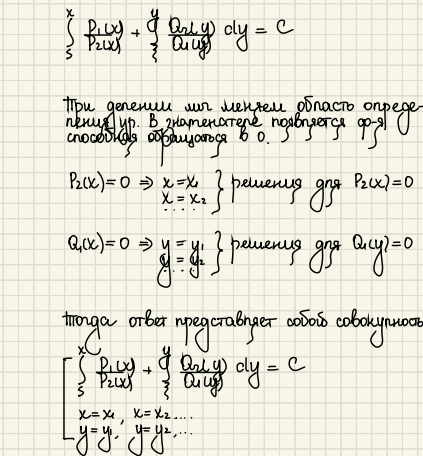 ∫ P₁(x)/P₂(x) + ∫ Q₂(y)/Q₁(y) dy = C
При делении мы меняем область опреде-
ления ур. В знаменателе появляется ф-я
способная обращаться в 0.
P₂(x)=0 ⇒ x=x₁
x=x₂
.... } решения для P₂(x)=0
Q₁(x)=0 ⇒ y=y₁
y=y₂
... } решения для Q₁(y)=0
Тогда ответ представляет собой совокупность
[ ∫ P₁(x)/P₂(x) + ∫ Q₂(y)/Q₁(y) dy = C
x=x₁, x=x₂,...
y=y₁, y=y₂,...